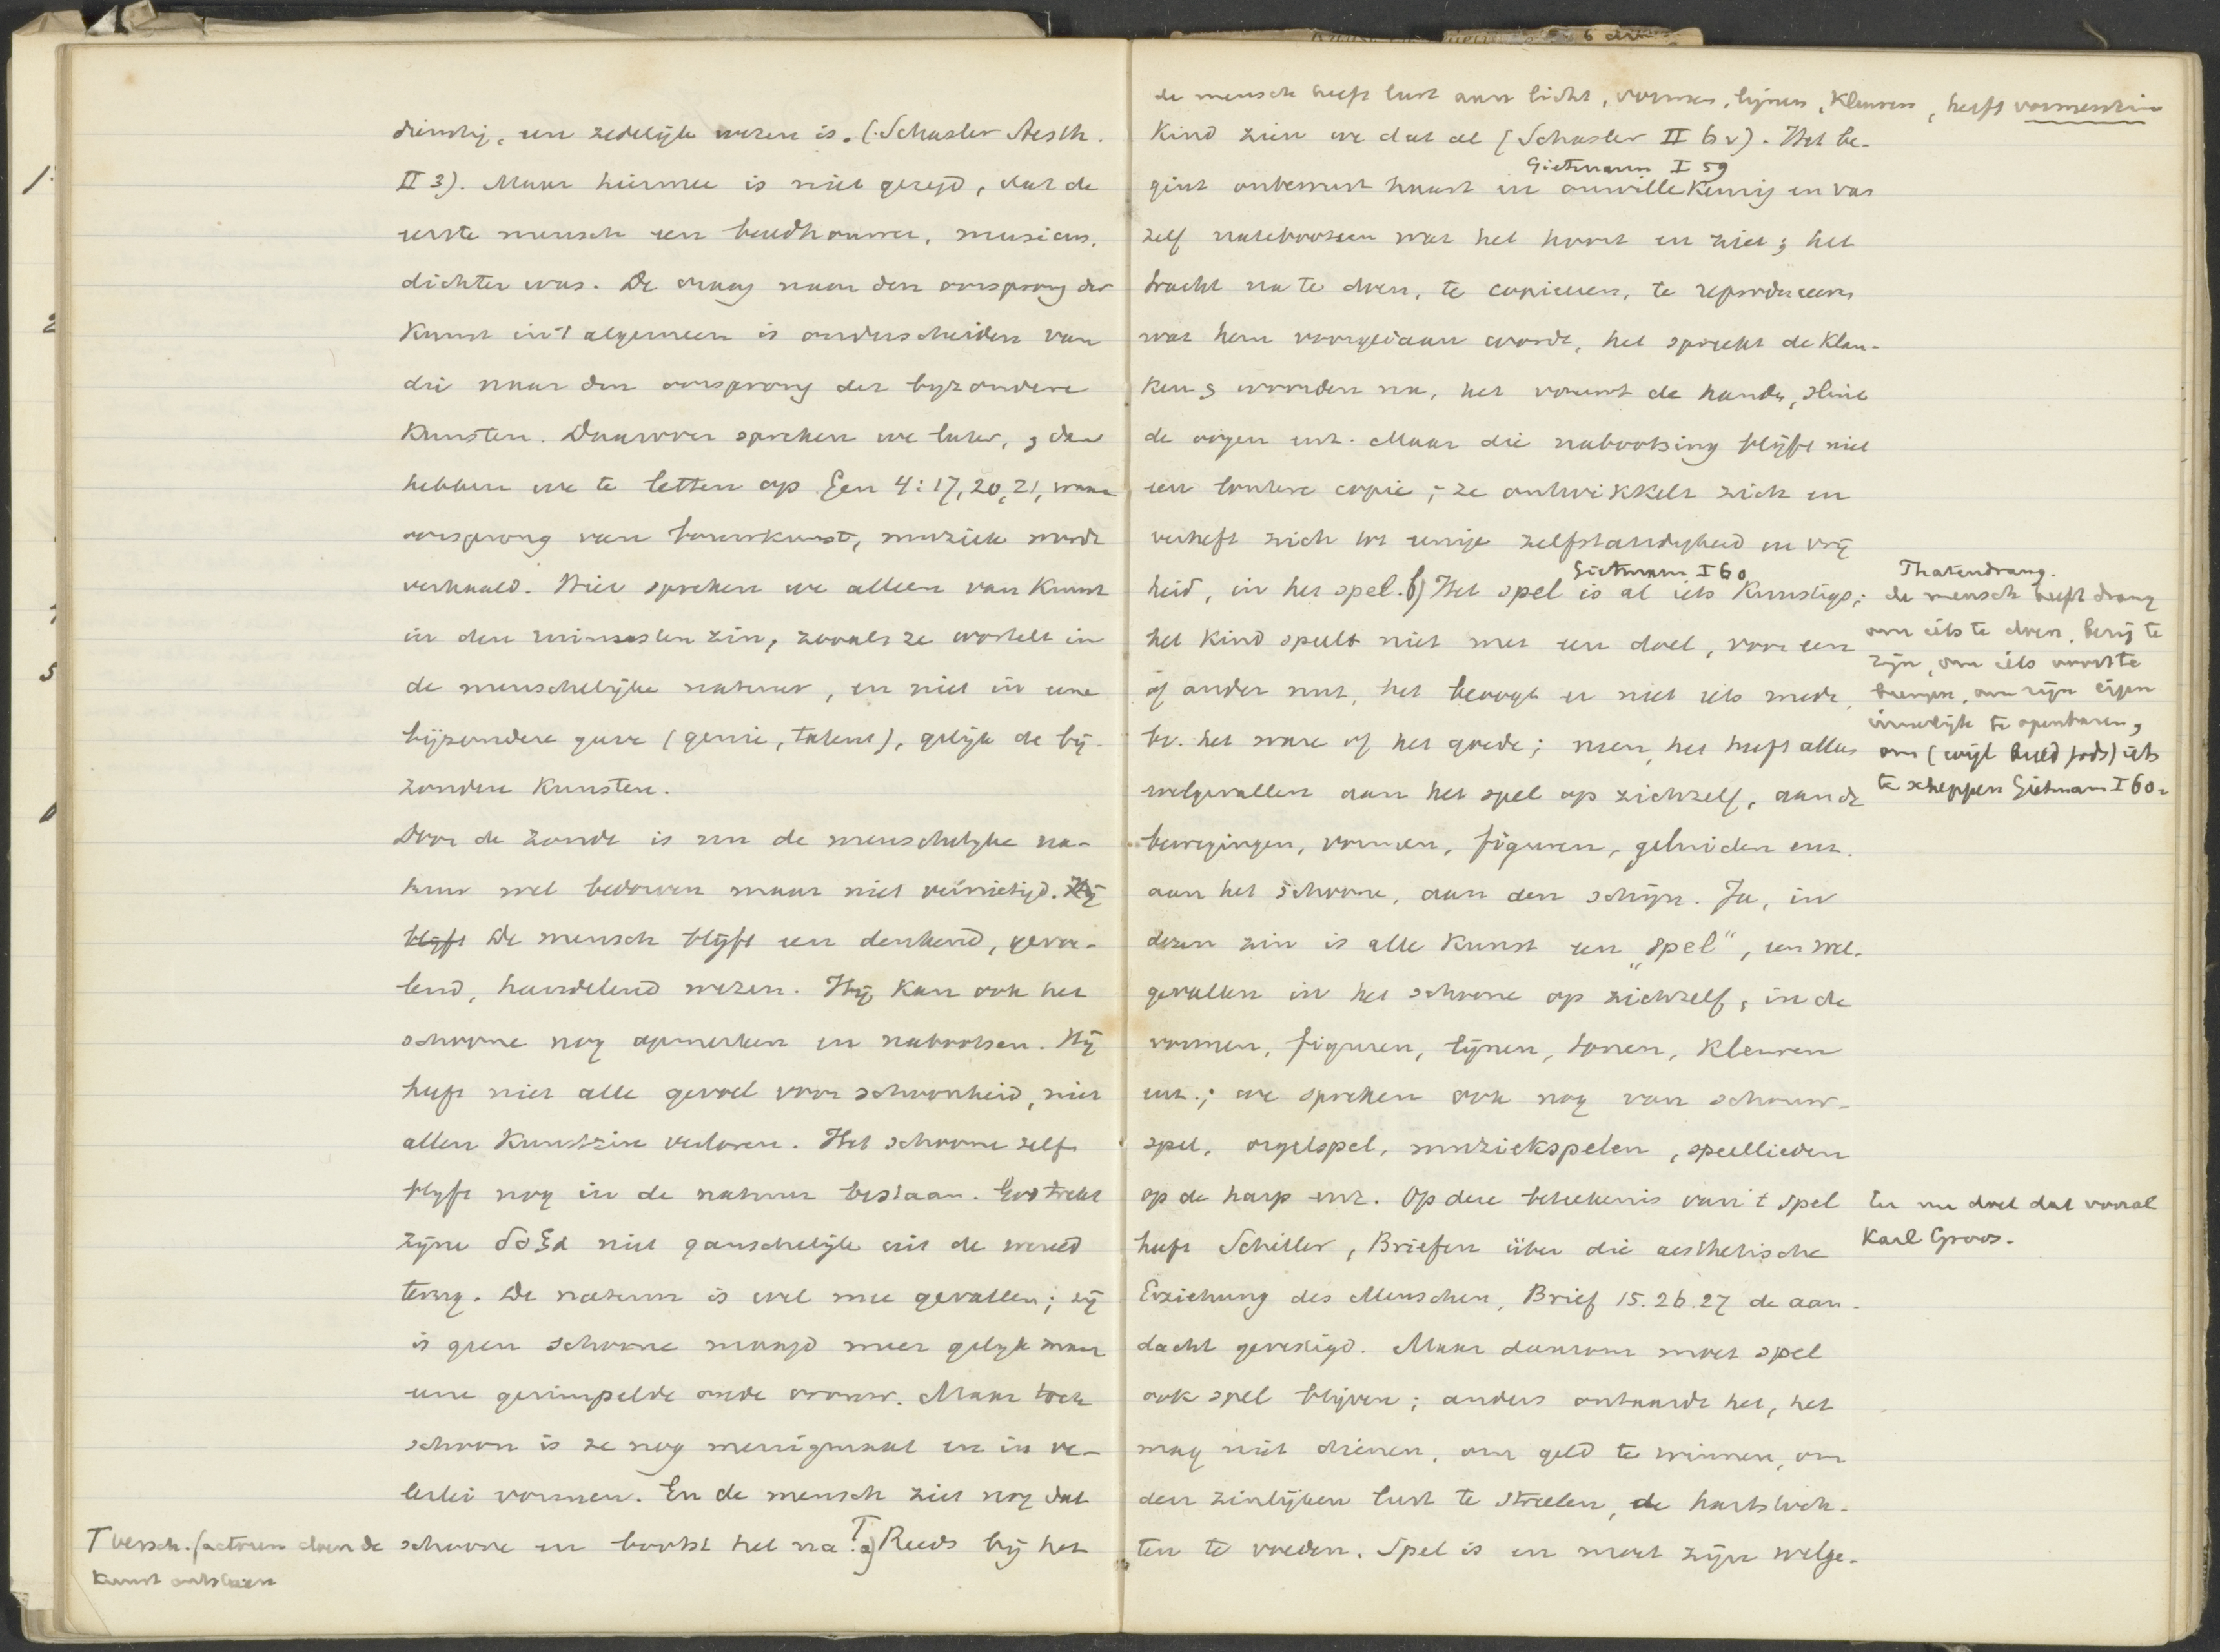 dienstig, een zedelijk wezen is. (Schasler Aesth.
II 3). Maar hiermee is niet gezegd, dat de
eerste mensch een beeldhouwer, musicus,
dichter was. De vraag naar den oorsprong der
Kunst in 't algemeen is onderscheiden van
die naar den oorsprong der byzondere
Kunsten. Daarover spreken we later, & dan
hebben we te letten op Gen 4:17, 20, 21, waar
oorsprong van bouwkunst, muziek wordt
verhaald. Hier spreken we alleen van Kunst
in den ruimsten zin, zooals ze wortelt in
de menschelijke natuur, en niet in eene
bijzondere gave (genie, talent), gelijk de bij-
zondere Kunsten.
Door de zonde is nu de menschelyke na-
tuur wel bedorven maar niet vernietigd. Hij
blijft De mensch blijft een denkend, gevoe-
lend, handelend wezen. Hij Kan ook het
schoone nog opmerken en nabootsen. Hij
heeft niet alle gevoel voor schoonheid, niet
allen Kunstzin verloren. Het schoone zelf
blyft nog in de natuur bestaan. God trekt
zijne δοξα niet ganschelijk uit de wereld
terug. De natuur is wel mee gevallen; zij
is geen schoone maagd meer gelijk maar
eene gerimpelde oude vrouw. Maar toch
schoon is ze nog menigmaal en in ve-
lerlei vormen. En de mensch ziet nog dat
schoone en bootst het na. T a) Reeds bij het
T versch. factoren doen de
Kunst ontstaan
de mensch heeft lust aan licht, vormen, lijnen, Kleuren, heeft vormenzin
Kind zien we dat al (Schasler II 6v). Het be-
Gietmann I 59
gint onbewust haast en onwillekeurig en van
zelf nabootsen wat het hoort en ziet; het
tracht na te doen, te copieeren, te reproduceeren
wat hem voorgedaan wordt, het spreekt de Klan-
ken & woorden na, het vouwt de handen, sluit
de oogen enz. Maar die nabootsing blijft niet
een loutere copie; ze ontwikkelt zich en
verheft zich tot eenige zelfstandigheid en vrij
Gietmann I 60
heid, in het spel. b) Het spel is al iets Kunstigs;
het Kind speelt niet met een doel, voor een
of ander nut, het beoogt er niet iets mede,
bv. het ware of het goede; neen, het heeft alleen
welgevallen aan het spel op zichzelf, aan de
bewegingen, vormen, figuren, geluiden enz.
aan het schoone, aan den schijn. Ja, in
dezen zin is alle Kunst een „spel“, een wel-
gevallen in het schoone op zichzelf, in de
vormen, figuren, lijnen, tonen, Kleuren
enz.; we spreken ook nog van schouw-
spel, orgelspel, muziekspelen, speellieden
op de harp enz. Op deze beteekenis van 't spel
heeft Schiller, Briefen über die aesthetische
Erziehung des Menschen, Brief 15. 26. 27 de aan-
dacht gevestigd. Maar daarom moet spel
ook spel blijven; anders ontaardt het, het
mag niet dienen, om geld te winnen, om
den zinlijken lust te streelen, de hartstoch-
ten te voeden. Spel is en moet zijn welge-
Thatendrang.
de mensch heeft drang
om iets te doen, bezig te
zijn, om iets voort te
brengen, om zijn eigen
innerlijk te openbaren,
om (wijl beeld Gods) iets
te scheppen Gietmann I 60.
En nu doet dat vooral
Karl Groos.